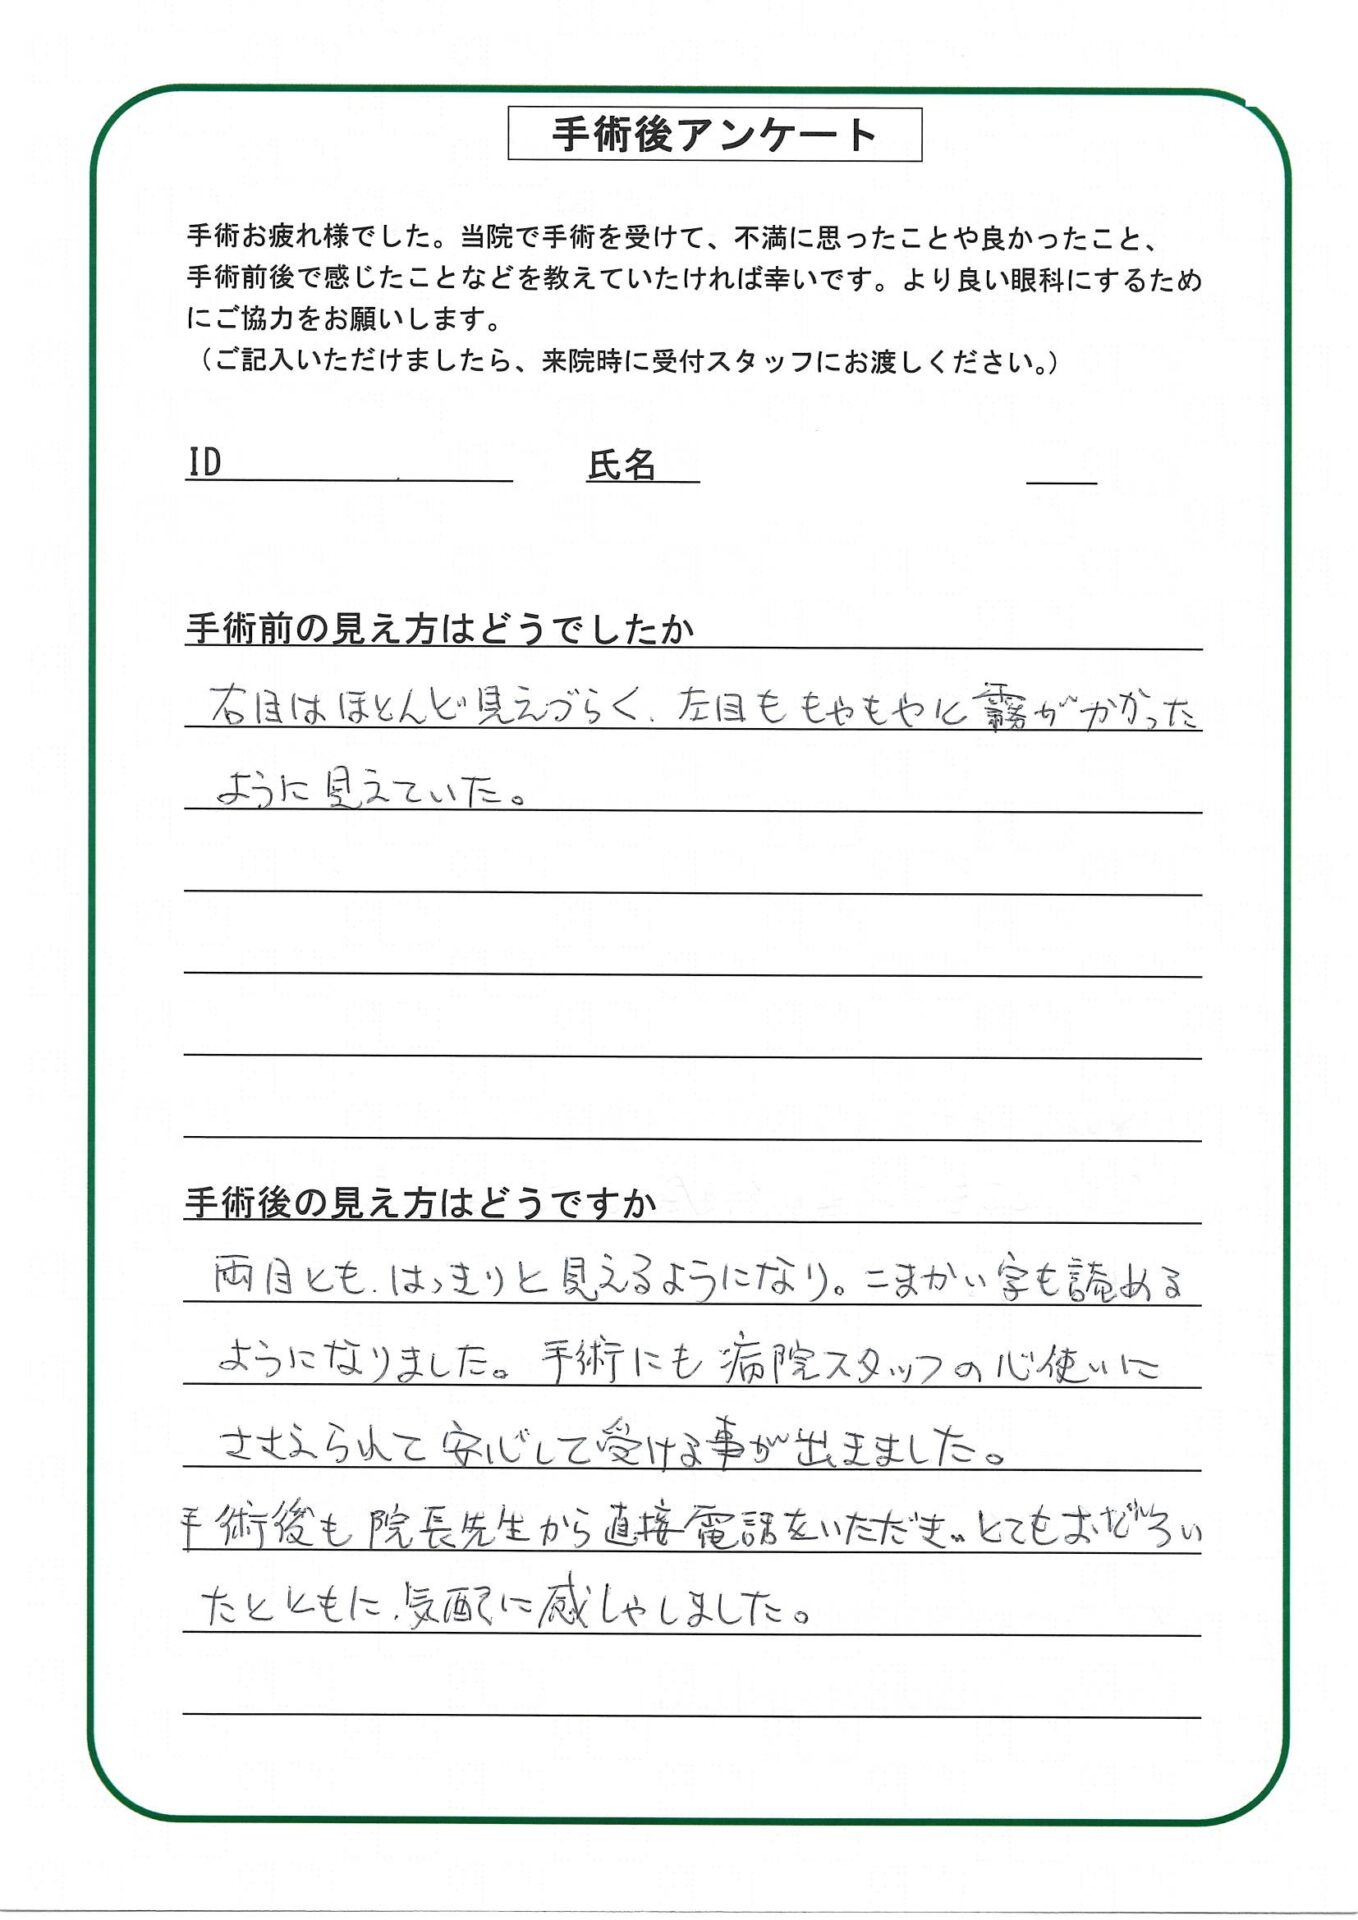 手術後アンケート
手術お疲れ様でした。当院で手術を受けて、不満に思ったことや良かったこと、
手術前後で感じたことなどを教えていたければ幸いです。より良い眼科にするため
にご協力をお願いします。
（ご記入いただけましたら、来院時に受付スタッフにお渡しください。）
ID 氏名
手術前の見え方はどうでしたか
右目はほとんど見えづらく、左目ももやもやに霧がかかった
ように見えていた。
手術後の見え方はどうですか
両目とも、はっきりと見えるようになり。こまかい字も読める
ようになりました。手術にも病院スタッフの心使いに
ささえられて安心して受ける事が出来ました。
手術後も院長先生から直接電話をいただき、とてもおどろい
たとともに、気配に感しゃしました。